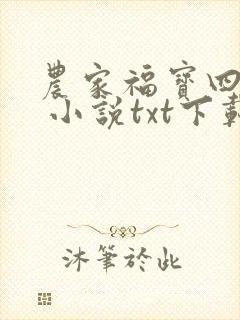 農家福寶四
小說txt下載
沐筆於此